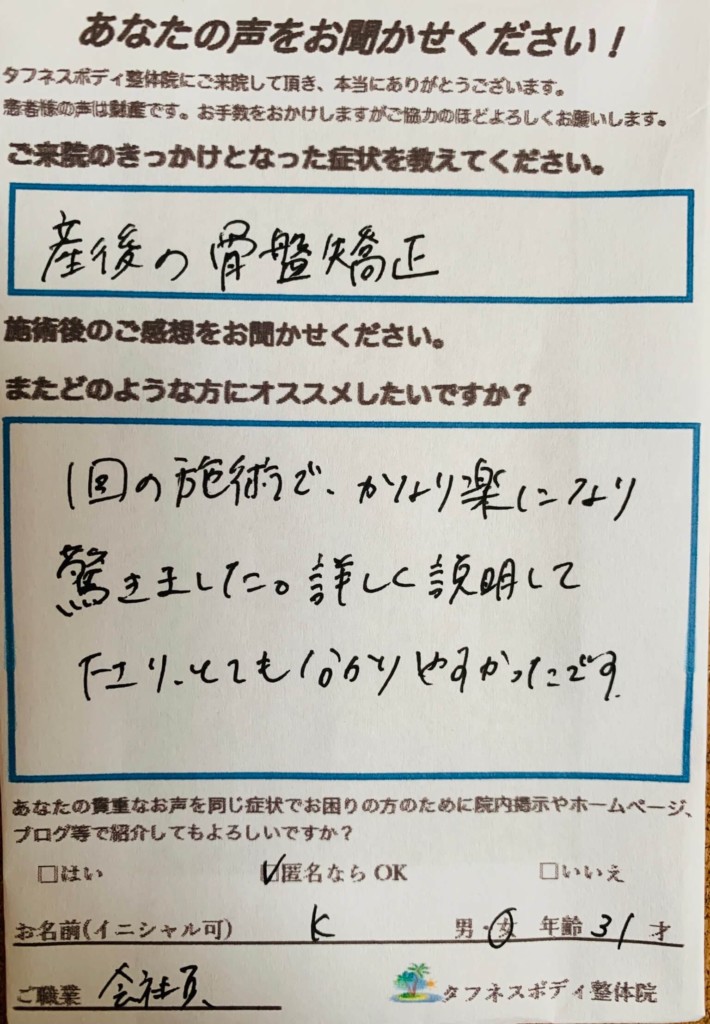 あなたの声をお聞かせください！
タフネスボディ整体院にご来院して頂き、本当にありがとうございます。
患者様の声は財産です。お手数をおかけしますがご協力のほどよろしくお願いします。
ご来院のきっかけとなった症状を教えてください。
産後の骨盤矯正
施術後のご感想をお聞かせください。
またどのような方にオススメしたいですか？
1回の施術で、かなり楽になり
驚きました。詳しく説明して
下さり、とても分かりやすかったです。
あなたの貴重なお声を同じ症状でお困りの方のために院内掲示やホームページ、
ブログ等で紹介してもよろしいですか？
□はい ☑匿名なら OK □いいえ
お名前(イニシャル可) K 男・女 年齢 31 才
ご職業 会社員 タフネスボディ整体院